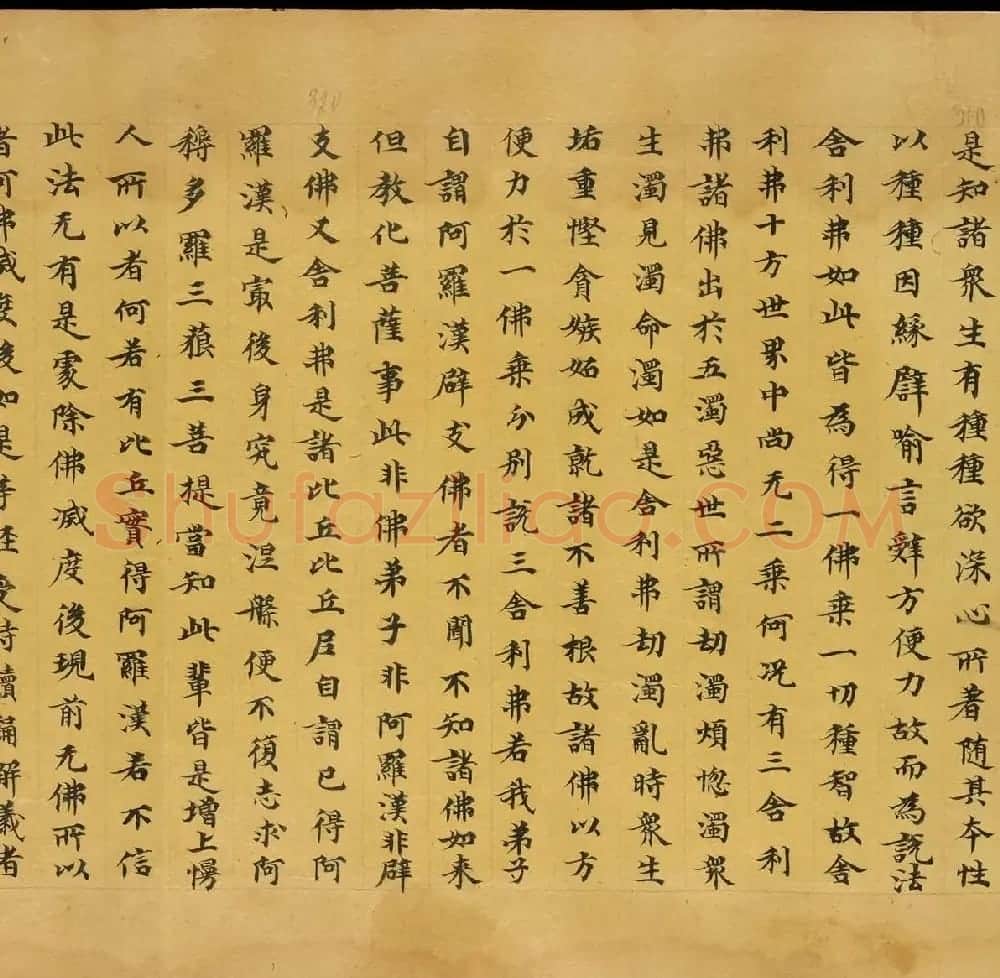 是知諸衆生有種種欲深心所著随其本性
以種種因緣譬喻言辝方便力故而為說法
舎利弗如此皆為得一佛乗一切種智故舎
利弗十方世界中尚无二乗何况有三舎利
弗諸佛出於五濁惡世所謂劫濁煩惱濁衆
生濁見濁命濁如是舎利弗劫濁亂時衆生
垢重慳貪嫉妬成就諸不善根故諸佛以方
便力於一佛乗分別說三舎利弗若我弟子
自謂阿羅漢辟支佛者不聞不知諸佛如来
但教化菩薩事此非佛弟子非阿羅漢非辟
支佛又舎利弗是諸比丘比丘尼自謂已得阿
羅漢是㝡後身究竟涅槃便不復志求阿
耨多羅三藐三菩提當知此輩皆是増上慢
人所以者何若有比丘實得阿羅漢若不信
此法无有是處除佛滅度後現前无佛所以
者何佛滅度後如是等經受持讀誦解義者
Shufaziliao.COM